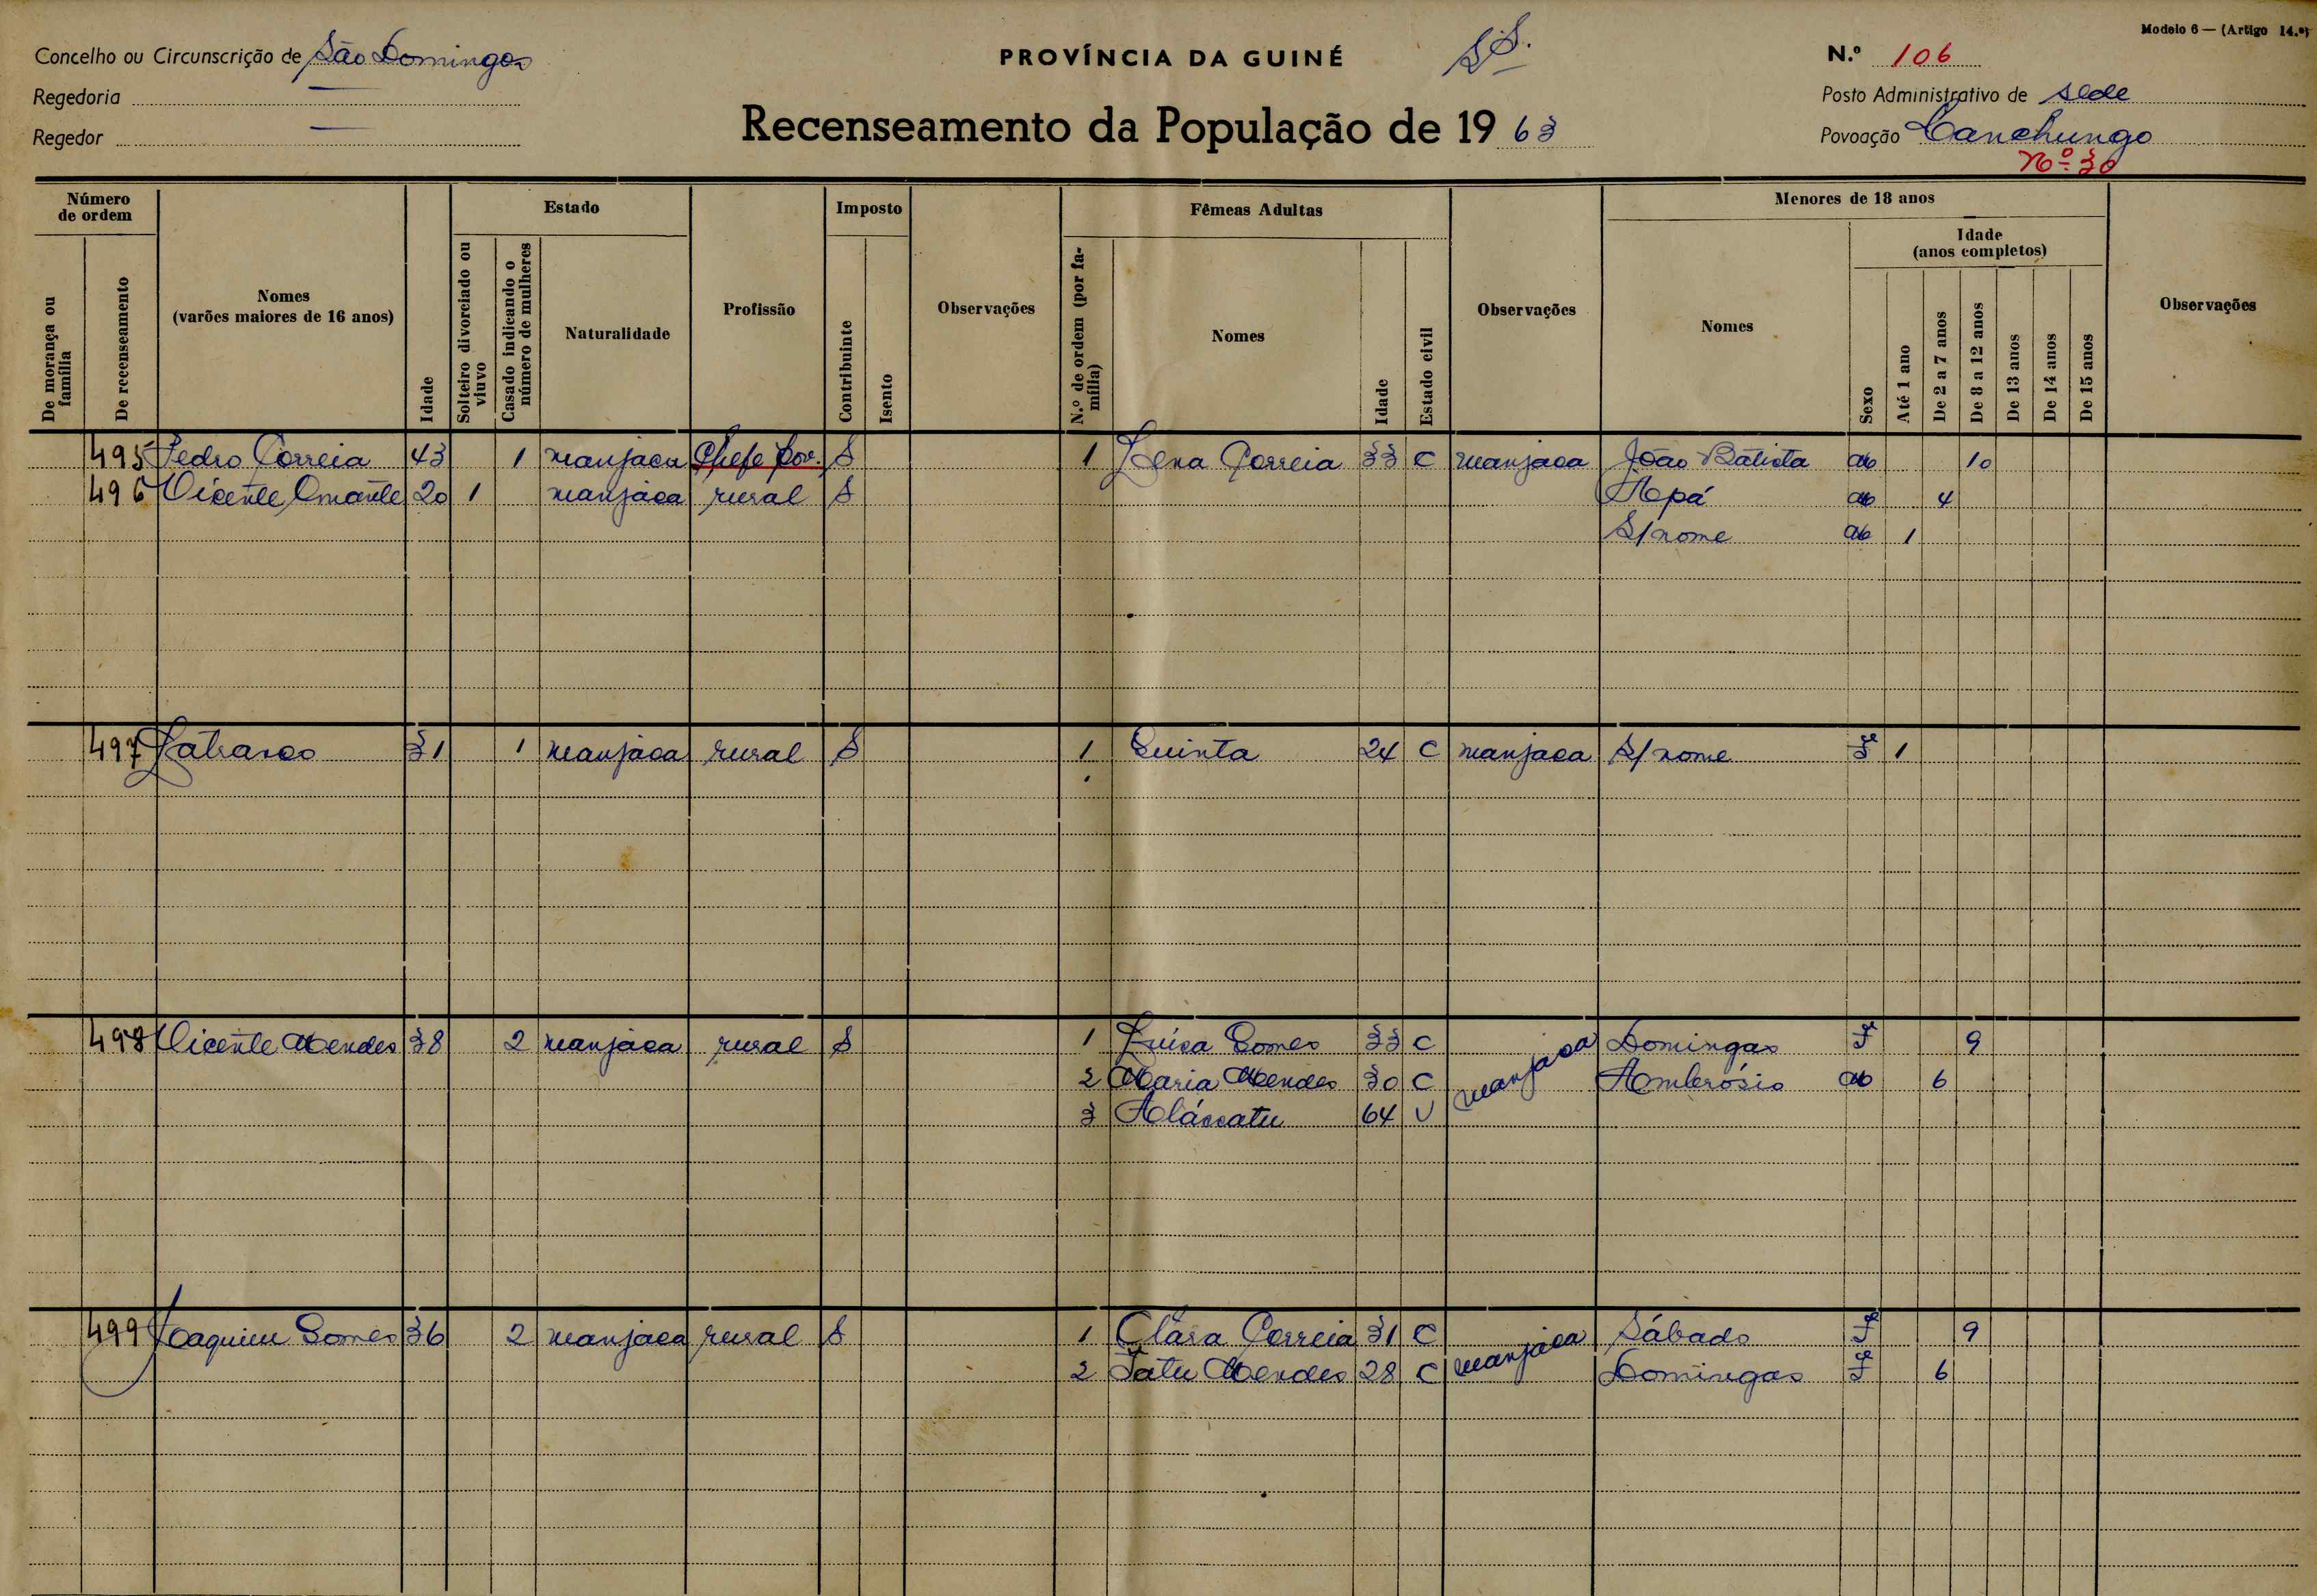 Modelo 6 — (Artigo 14.º)
Concelho ou Circunscrição de São Domingos
PROVÍNCIA DA GUINÉ
N.º 106
Regedoria —
Posto Administrativo de Sede
Regedor —
Recenseamento da População de 1963
Povoação Canchungo
Nº 30
Número de ordem
De morança ou família
De recenseamento
Nomes (varões maiores de 16 anos)
Idade
Estado
Solteiro divorciado ou viuvo
Casado indicando o número de mulheres
Naturalidade
Profissão
Imposto
Contribuinte
Isento
Observações
Fêmeas Adultas
N.º de ordem (por família)
Nomes
Idade
Estado civil
Observações
Menores de 18 anos
Nomes
Sexo
Idade (anos completos)
Até 1 ano
De 2 a 7 anos
De 8 a 12 anos
De 13 anos
De 14 anos
De 15 anos
Observações
495 Pedro Correia 43 1 manjaca Chefe Pov. S 1 Lena Correia 33 C manjaca João Batista M 10
496 Vicente 20 1 manjaca rural S Apá M 4
S/nome M 1
497 31 1 manjaca rural S 1 Quinta 24 C manjaca S/nome F 1
498 Vicente Mendes 38 2 manjaca rural S 1 Luísa Gomes 33 C manjaca Domingas F 9
2 Maria Mendes 30 C Ambrósio M 6
3 64 V
499 Joaquim Gomes 36 2 manjaca rural S 1 Clara Correia 31 C manjaca Sábado F 9
2 Fatu Mendes 28 C Domingas F 6